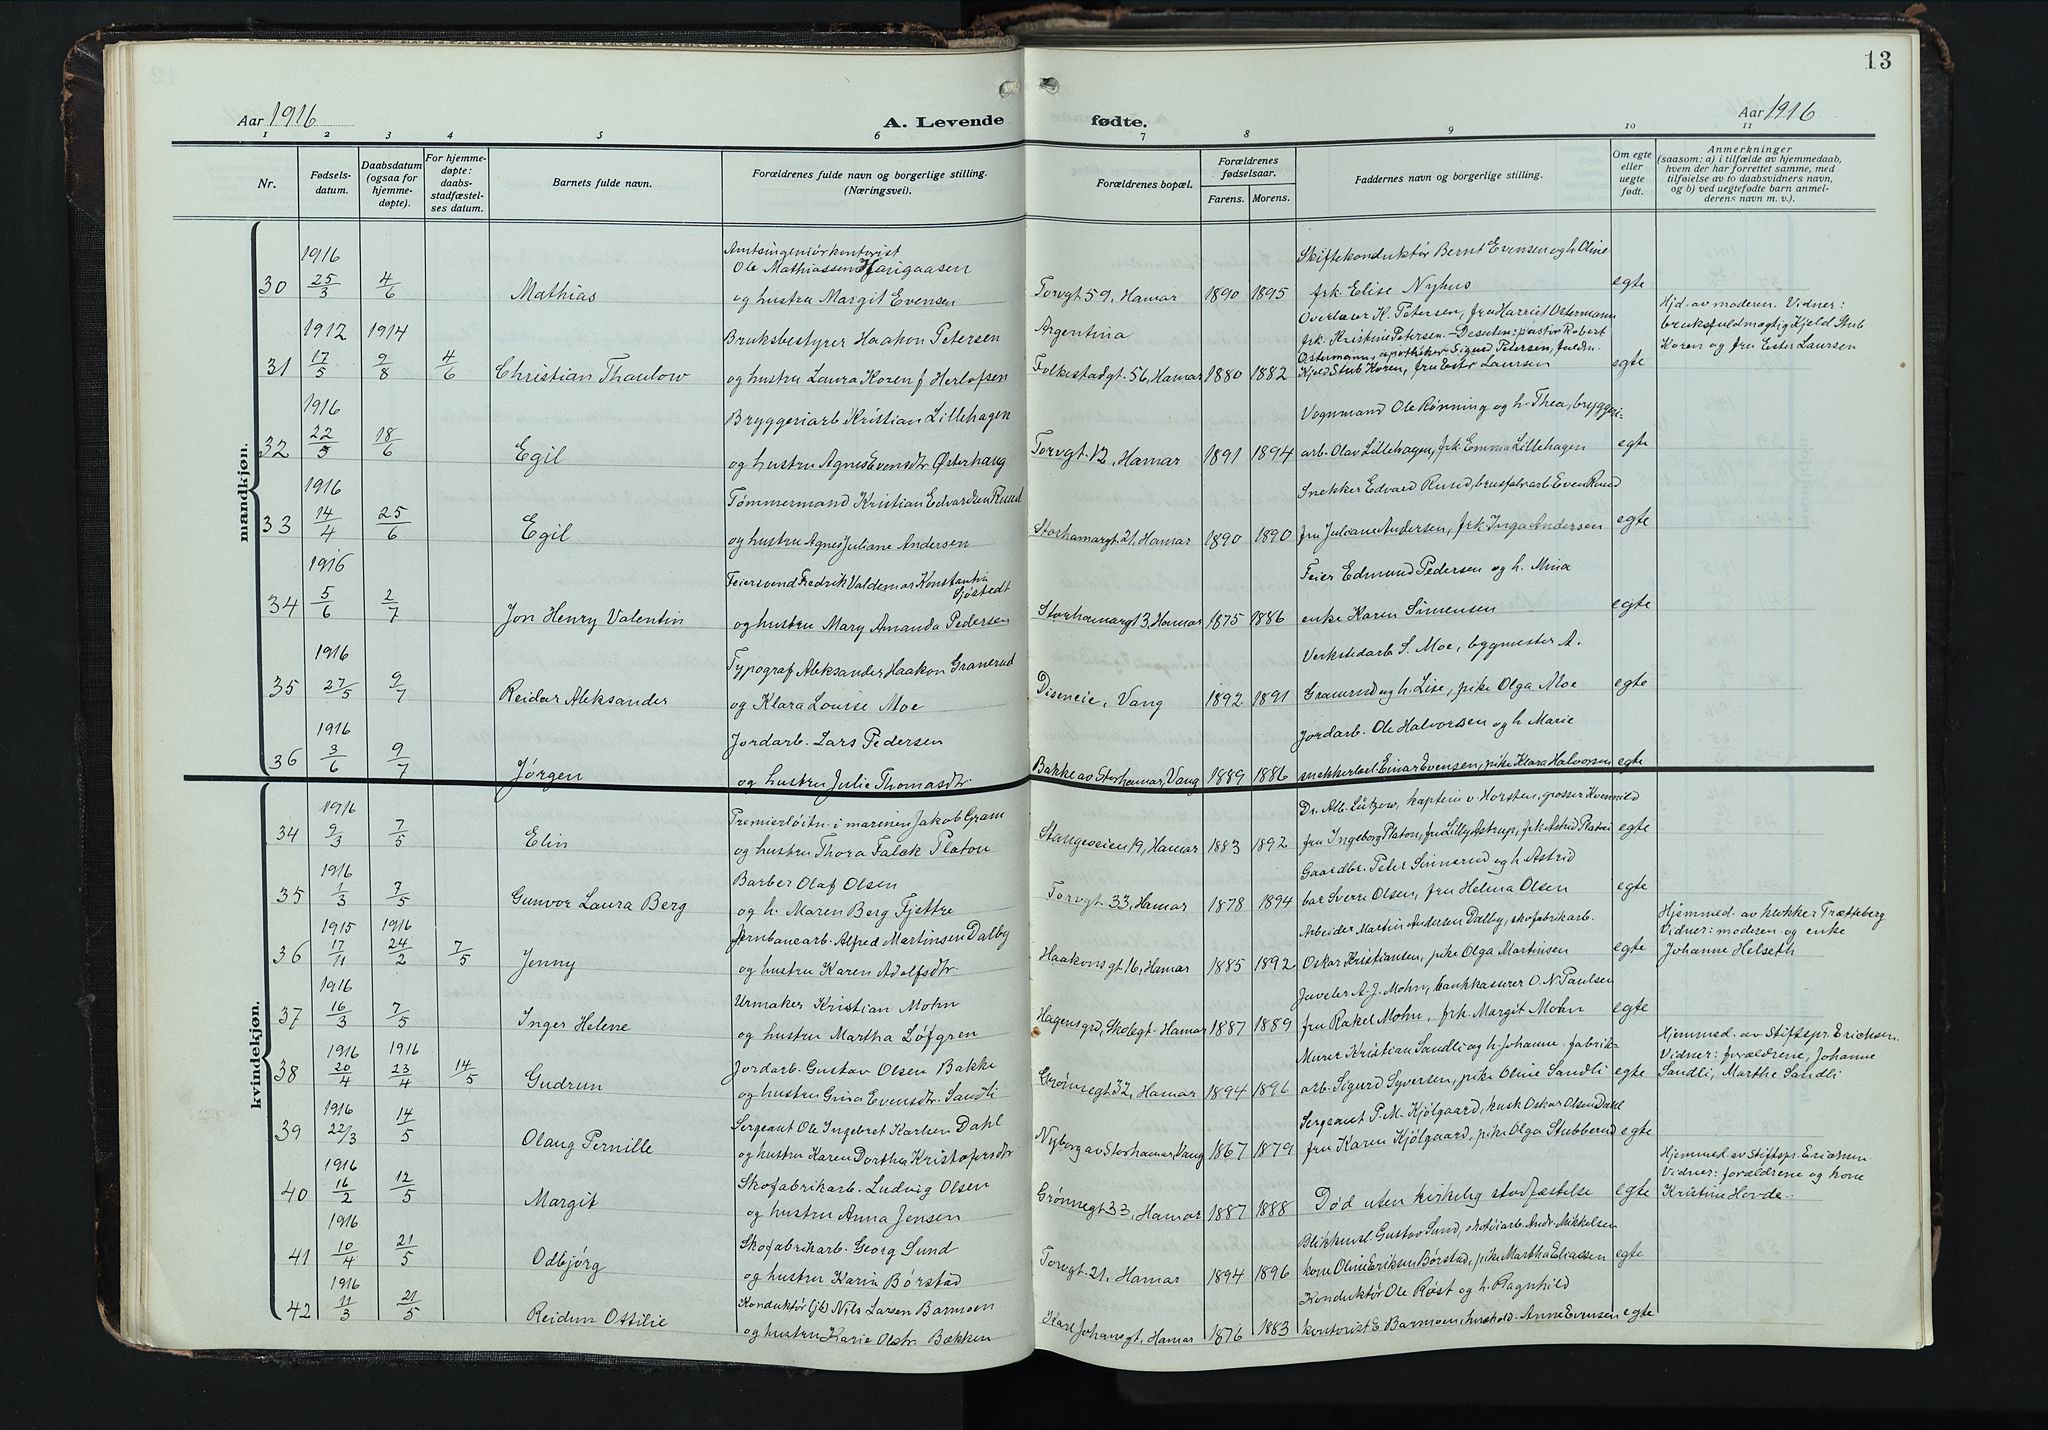 13
Aar 1916
A. Levende fødte.
Aar 1916
1 2 3 4 5 6 7 8 9 10 11
Nr.
Fødsels-
datum.
Daabsdatum
(ogsaa for
hjemme-
døpte).
For hjemme-
døpte:
daabs-
stadfæstel-
ses datum.
Barnets fulde navn.
Forældrenes fulde navn og borgerlige stilling.
(Næringsvei).
Forældrenes bopæl.
Forældrenes
fødselsaar.
Farens. Morens.
Faddernes navn og borgerlig stilling.
Om egte
eller
uegte
født.
Anmerkninger
(saasom: a) i tilfælde av hjemmedaab,
hvem der har forrettet samme, med
tilføielse av to daabsvidners navn,
og b) ved uegtefødte barn anmel-
derens navn m. v.).
mandkjøn.
1916 Amtsingeniørkontorist Skiftekonduktør Bernt Evensen og h. Oline
Ole Mathiassen Haugaasen
30 25/3 4/6 Mathias og hustru Margit Evensen Torvgt 59, Hamar 1890 1895 frk. Elise Nyhus egte
Overlærer K. Petersen, fru Harriet Ostermann Hjd. av moderen. Vidner:
1912 1914 Bruksbestyrer Haakon Petersen Argentina frk. Kristine Petersen. Desuten: pastor Robert bruksfuldmægtig Kjeld Stub
Ostermann, apotheker Sigurd Petersen, fuldm. Koren og fru Ester Laursen
31 17/5 9/8 4/6 Christian Thaulow og hustru Laura Koren f Herlofsen Folkestadgt. 56, Hamar 1880 1882 Kjeld Stub Koren, fru Ester Laursen egte
1916 Bryggeriarb Kristian Lillehagen Vognmand Ole Rønning og h. Thea, bryggeri-
32 22/3 18/6 Egil og hustru Agnes Evensdtr Østerhaug Torvgt. 12, Hamar 1891 1894 arb. Olav Lillehagen, frk. Emma Lillehagen egte
1916 Tømmermand Kristian Edvardsen Rund Snekker Edvard Rund, brusfabrarb Even Rund
33 14/4 25/6 Egil og hustru Agnes Juliane Andersen Storhamargt. 21, Hamar 1890 1890 fru Juliane Andersen, frk. Inga Andersen egte
1916 Feiersvend Fredrik Valdemar Konstantin Sjöstedt Feier Edmund Pedersen og h. Mina
34 5/6 2/7 Jon Henry Valentin og hustru Mary Amanda Pedersen Storhamargt 3, Hamar 1875 1886 enke Karen Simensen egte
1916 Typograf Aleksander Haakon Granerud Verkstedarb S. Moe, bygmester A.
35 27/5 9/7 Reidar Aleksander og Klara Louise Moe Diseneie, Vang 1892 1891 Granerud og h. Lise, pike Olga Moe egte
1916 Jordarb. Lars Pedersen Jordarb. Ole Halvorsen og h. Marie
36 3/6 9/7 Jørgen og hustru Julie Thomasdtr Bakke av Storhamar, Vang 1889 1886 snekkerbel. Einar Evensen, pike Klara Halvorsen egte
kvindekjøn.
1916 Premierløitn. i marinen Jakob Gram Dr. Alb. Lützow, kaptein v. Horsten, grosser Kvernild
34 9/3 7/5 Elin og hustru Thora Falck Platou Stangeveien 19, Hamar 1883 1892 fru Ingeborg Platou, fru Lilly Astrup, frk Astrid Platou egte
1916 Barber Olaf Olsen Gaardbr. Peter Sinnerud og h Astrid
35 1/3 7/5 Gunvor Laura Berg og h. Maren Berg Fjettre Torvgt. 33, Hamar 1878 1894 bar Sverre Olsen, fru Helma Olsen egte
1915 1916 Jernbanearb. Alfred Martinsen Dalby Arbeider Martin Andersen Dalby, skofabrikarb. Hjemmed. av klokker Trætteberg
Vidner: moderen og enke
36 17/11 24/2 7/5 Jenny og hustru Karen Adolfsdtr. Haakonsgt 16, Hamar 1885 1892 Oskar Kristiansen, pike Olga Martinsen egte Johanne Helseth
1916 Urmaker Kristian Mohn Juveler A. J. Mohn, bankkasserer O. N Paulsen
37 16/3 7/5 Inger Helene og hustru Martha Löfgren Hagensgrd, Skolegt. Hamar 1887 1889 fru Rakel Mohn, frk Margit Mohn egte
1916 1916 Jordarb. Gustav Olsen Bakke Murer Kristian Sandli og h. Johanne, fabrik- Hjemmed. av Stiftspr. Erichsen.
Vidner: forældrene, Johanne
38 20/4 23/4 14/5 Gudrun og hustru Gina Evensdtr. Sandli Grønnegt 32, Hamar 1894 1896 arb. Sigurd Syversen, pike Oline Sandli egte Sandli, Marthe Sandli
1916 Sergeant Ole Ingebret Karlsen Dahl Sergeant P. M. Kjölgaard, kusk Oskar Olsen Dahl
39 22/3 14/5 Olaug Pernille og hustru Karen Dorthea Kristofersdtr Nyborg av Storhamar, Vang 1867 1879 fru Karen Kjölgaard, pike Olga Stubberud egte
1916 Skofabrikarb. Ludvig Olsen Hjemmed av Stiftspr. Erichsen
Vidner: forældrene og kone
40 16/2 12/5 Margit og hustru Anna Jensen Grønnegt 33, Hamar 1887 1888 Død uten kirkelig stadfæstelse egte Kristine Hovde.
1916 Skofabrikarb. Georg Sund Blikkensl. Gustav Sund, skotøiarb. Andr. Mikkelsen
41 10/4 21/5 Odbjørg og hustru Karin Børstad Torvgt. 21, Hamar 1894 1896 kone Oline Eriksen Børstad, pike Martha Eliassen egte
1916 Konduktør (jb) Nils Larsen Barmoen Konduktör Ole Røst og h. Ragnhild
42 11/3 21/5 Reidun Ottilie og hustru Karie Olstr. Bækken Karl Johansgt, Hamar 1876 1883 kontorist E Barmoen, hushold. Anne Evensen egte